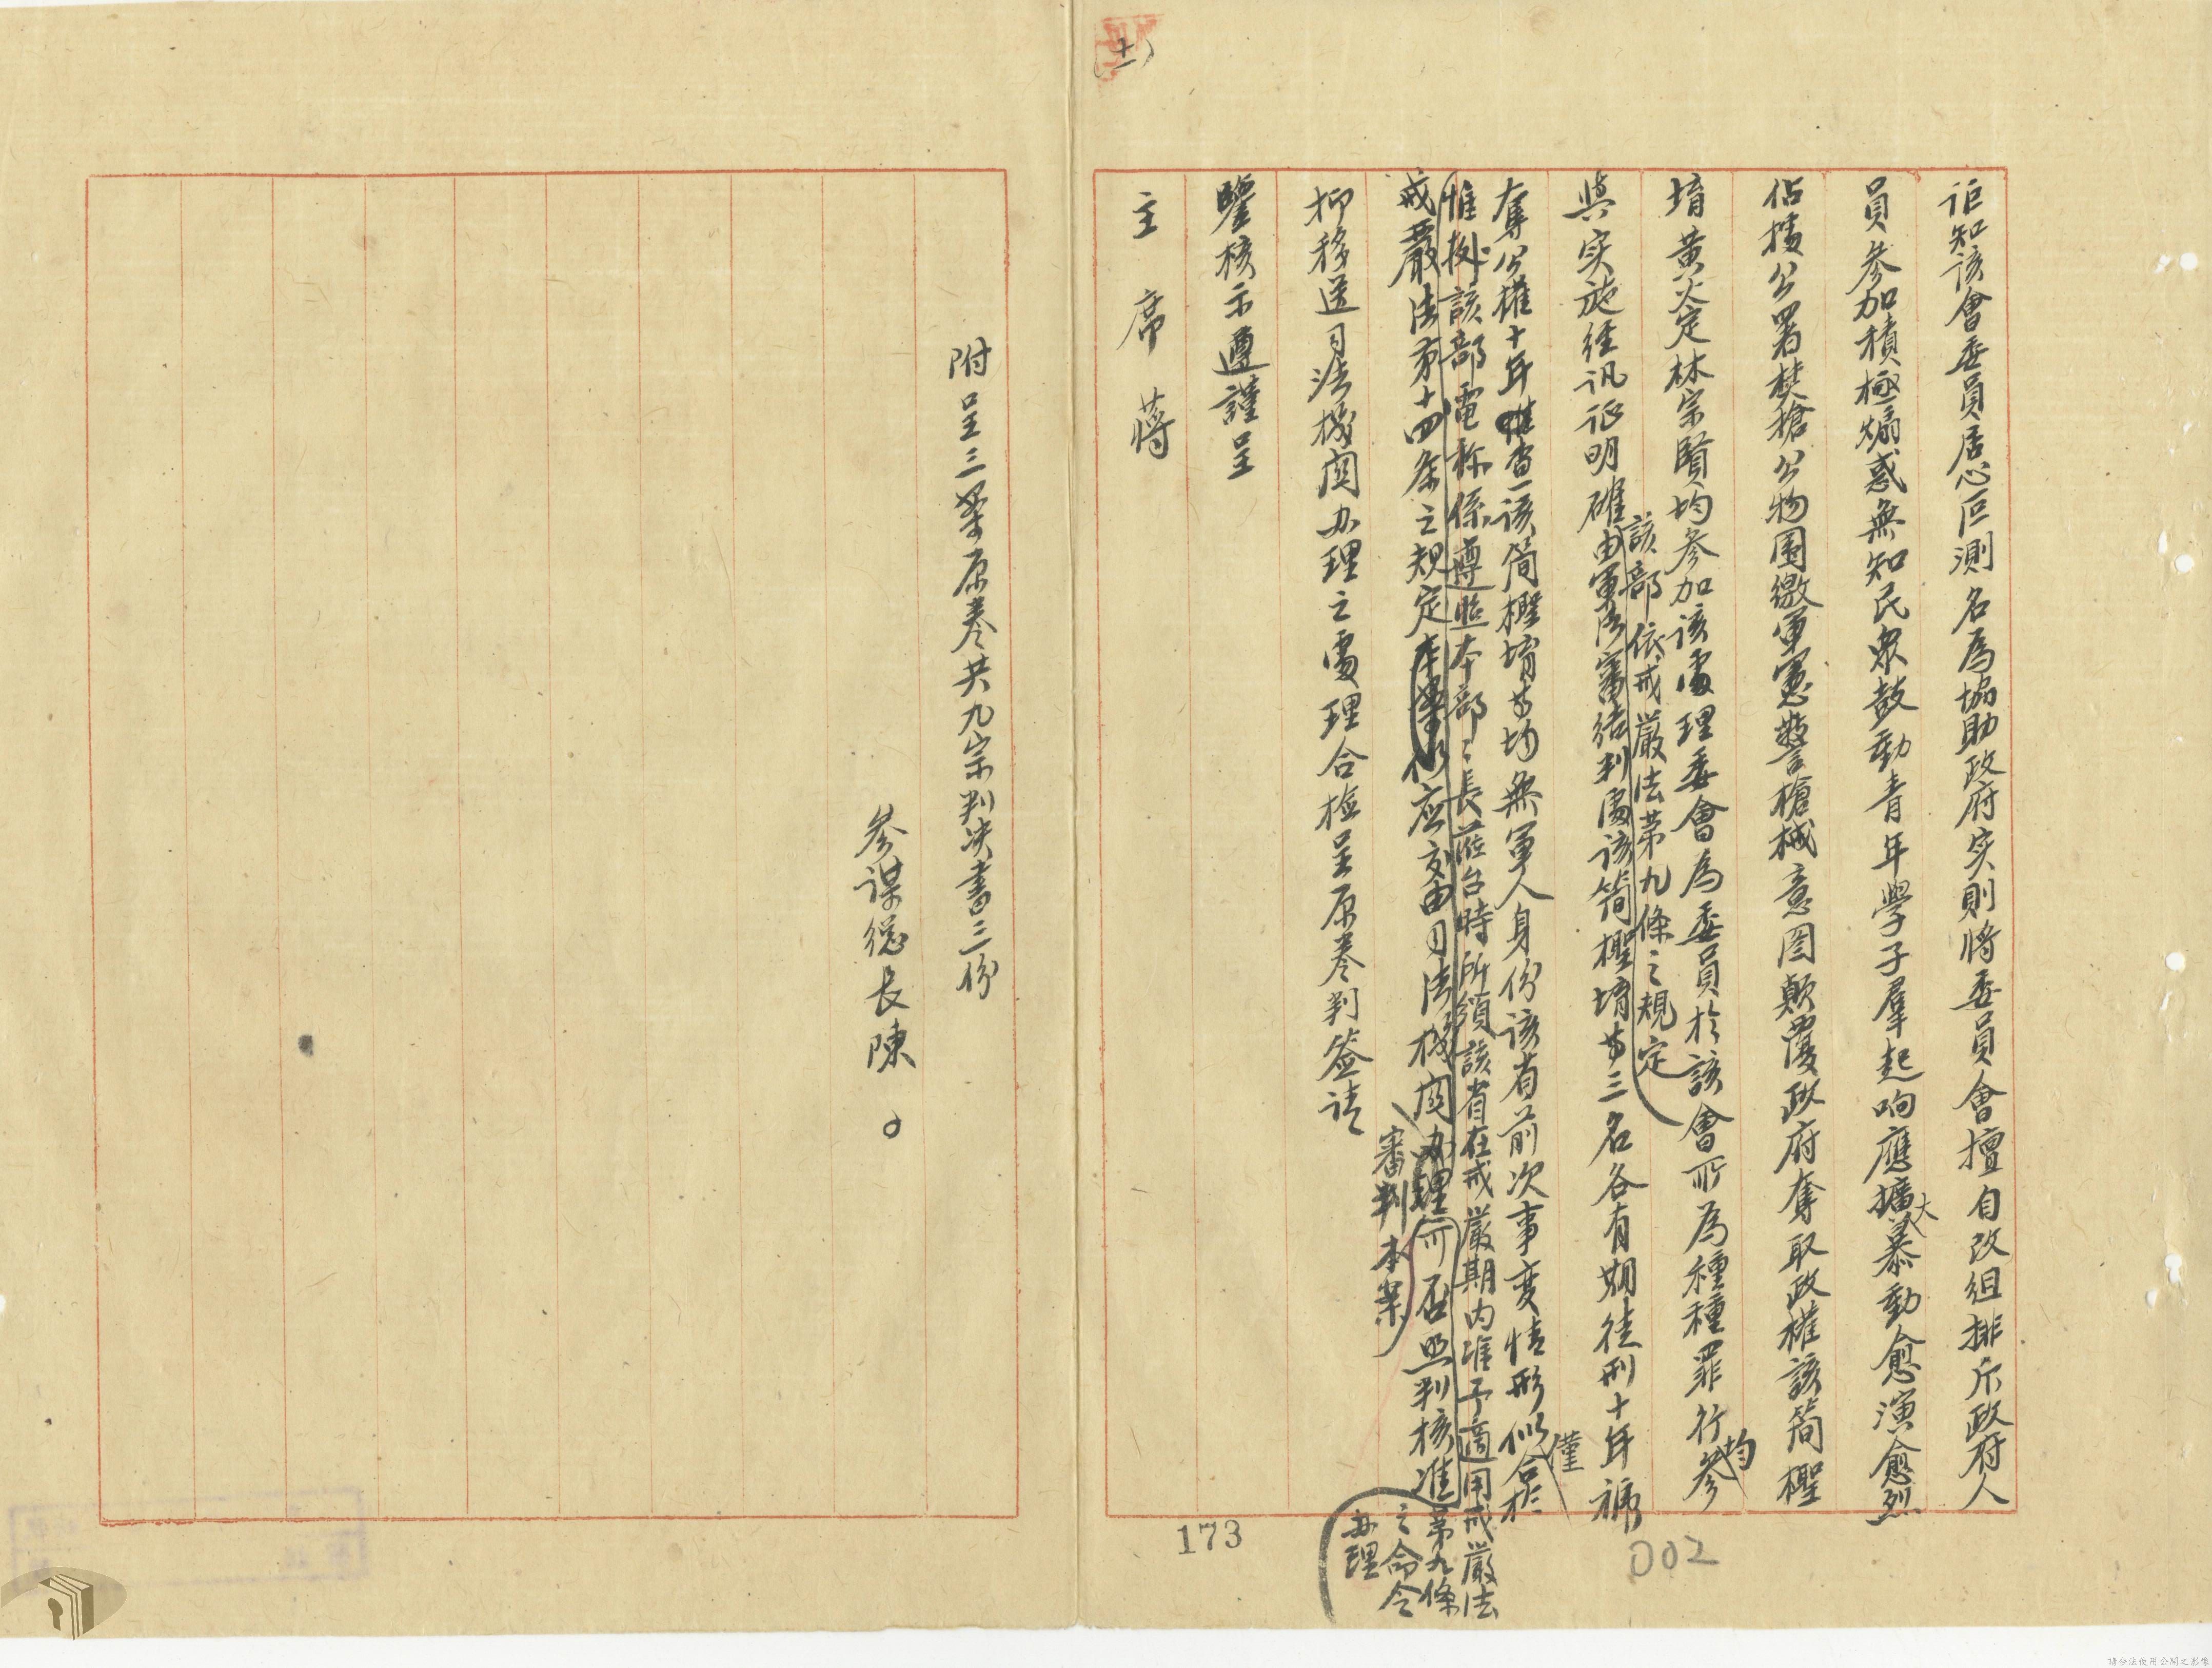 (十一)
詎知該會委員居心叵測名為協助政府实則將委員會擅自改組排斥政府人
員參加積極煽惑無知民衆鼓動青年學子羣起响應擴大暴動愈演愈烈
佔據公署焚搶公物圍繳軍憲警槍械意图顛覆政府奪取政權該簡檉
堉黃火定林宗賢均參加該處理委會為委員於該會所為種種罪行均參
該部依戒嚴法第九條之規定
與实施經訊证明確由軍法審結判處該簡檉堉等三名各有期徒刑十年褫
奪公權十年惟查該簡檉堉等均無軍人身份該省前次事变情形似僅合於
惟据該部電称係遵照本部部長蒞台時所頒該省在戒嚴期內准予適用戒嚴法
第九條之命令辦理
戒嚴法第十四条之規定本案似应交由司法機関办理而否照判核准
審判本案
抑移送司法機関办理之處理合檢呈原卷判簽請
鑒核示遵謹呈
主席蔣
附呈三案原卷共九宗判決書三份
參謀總長陳
173
002
請合法使用公開之影像